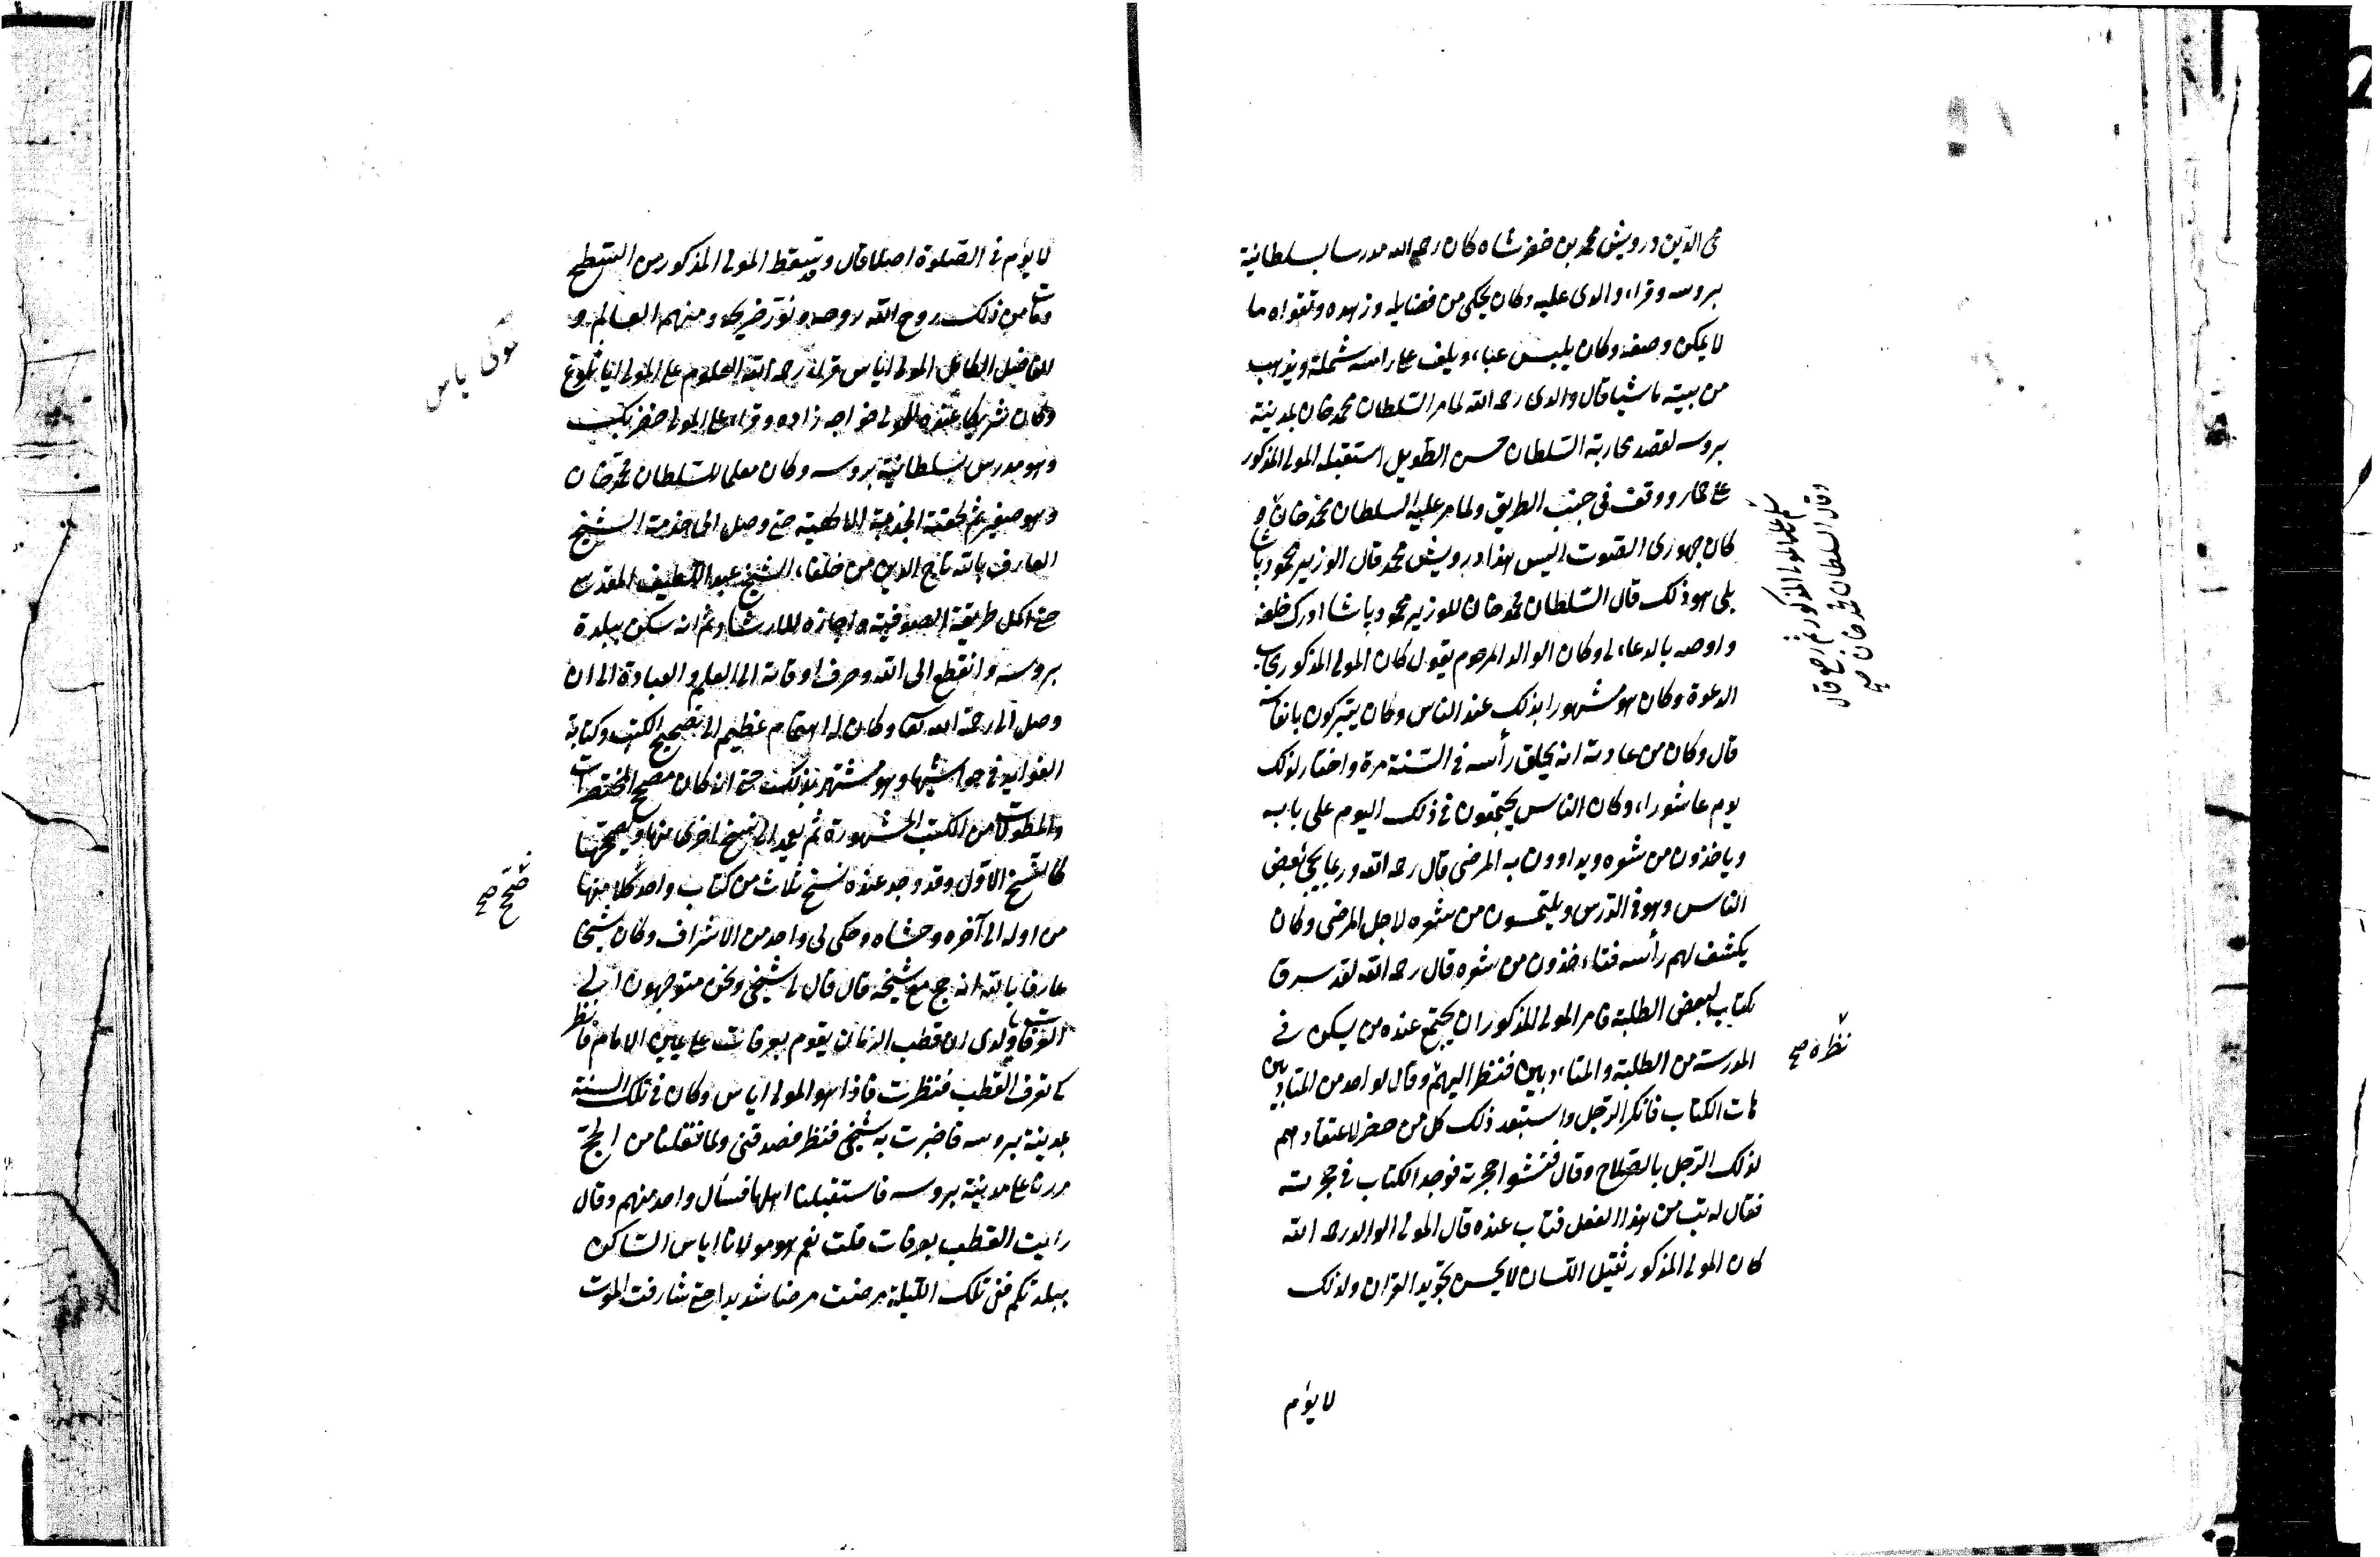 محي الدين درويش محمد بن خضر شاه كان رحمه الله مدرسا بسلطانية
بروسه وقراء والدى عليه وكان يحكى من فضايله وزهده وتقواه ما
لا يمكن وصفه وكان يلبس عباء ويلف على راسه شملة ويذهب
من بيته ماشيا قال والدى رحمه الله لما مر السلطان محمد خان بمدينة
بروسه لقصد محاربة السلطان حسن الطويل استقبله المولى المذكور
على حمار ووقف فى جنب الطريق ولما مر عليه السلطان محمد خان و
كان جهورى الصوت اليس هذا درويش محمد قال الوزير محمود باشا
بلى هو ذلك قال السلطان محمد خان للوزير محمود باشا ادرك خلفه
واوصه بالدعاء لى وكان الوالد المرحوم يقول كان المولى المذكور مجاب
الدعوة وكان هو مشهورا بذلك عند الناس وكان يتبركون بانفاسه
قال وكان من عادته انه يحلق رأسه فى السنة مرة واختار لذلك
يوم عاشوراء وكان الناس يجتمعون فى ذلك اليوم على بابه
وياخذون من شعره ويداوون به المرضى قال رحمه الله وربما يجئ بعض
الناس وهو فى الدرس ويلتمسون من شعره لاجل المرضى وكان
يكشف لهم رأسه فتاءخذون من شعره قال رحمه الله لقد سرق
كتاب لبعض الطلبة فامر المولى المذكور ان يجتمع عنده من يسكن فى
المدرسة من الطلبة والمتاءدبين فنظر اليهم وقال لواحد من المتادبين
هات الكتاب فانكر الرجل واستبعد ذلك كل من حضر لاعتقادهم
لذلك الرجل بالصلاح وقال فتشوا حجرته فوجد الكتاب فى حجرته
فقال له تب من هذا الفعل فتاب عنده قال المولى الوالد رحمه الله
كان المولى المذكور ثقيل اللسان لا يحسن تجويد القران ولذلك
لا يؤم
سلم على المولى المذكور ثم رجع قال
وقال السلطان محمد خان صح
نظره صح
لا يؤم فى الصلوة اصلا قال وسقط المولى المذكور من السطح
ومات من ذلك روح الله روحه ونور ضريحه ومنهم العالم و
الفاضل الكامل المولى اياس قراء رحمه الله العلوم على المولى
وكان شريكا عنده للمولى خواجه زاده وقراء على المولى خضر بك
وهو مدرس بسلطانية بروسه وكان معلما للسلطان محمد خان
وهو صغير ثم لحقته الجذبة الالهية حتى وصل الى خدمة الشيخ
العارف بالله تاج الدين من خلفاء الشيخ عبد اللطيف المقدسى
حتى اكمل طريقة الصوفية واجازه للارشاد ثم انه سكن ببلدة
بروسه وانقطع الى الله وصرف اوقاته الى العلم والعبادة الى ان
وصل الى رحمة الله تعالى وكان له اهتمام عظيم الى تصحيح الكتب وكتابة
الفوايد فى حواشيها وهو مشتهر بذلك حتى انه كان مصحح المختصرات
والمطولات من الكتب المشهورة ثم يعيد الى نسخ اخرى منها ويصححها
كالنسخ الاول وقد وجد عنده نسخ ثلاث من كتاب واحد كلا منها
من اوله الى آخره وحشاه وحكى لى واحد من الاشراف وكان شيخا
عارفا بالله انه حج مع شيخه قال قال لى شيخى ونحن متوجهون الى
العرفات يا ولدى ان قطب الزمان يقوم بعرفات على يمين الامام فانظر
كى تعرف القطب فنظرت فاذا هو المولى اياس وكان فى تلك السنة
بمدينة بروسه فاخبرت به شيخى فنظر فصدقنى ولما قفلنا من الحج
مررنا على مدينة بروسه فاستقبلنا اهلها فسأل واحد منهم وقال
رايت القطب بعرفات قلت نعم هو مولانا اياس الساكن
ببلدتكم ففى تلك الليلة مرضت مرضا شديدا حتى شارفت الموت
مولى ياس
صحح صح